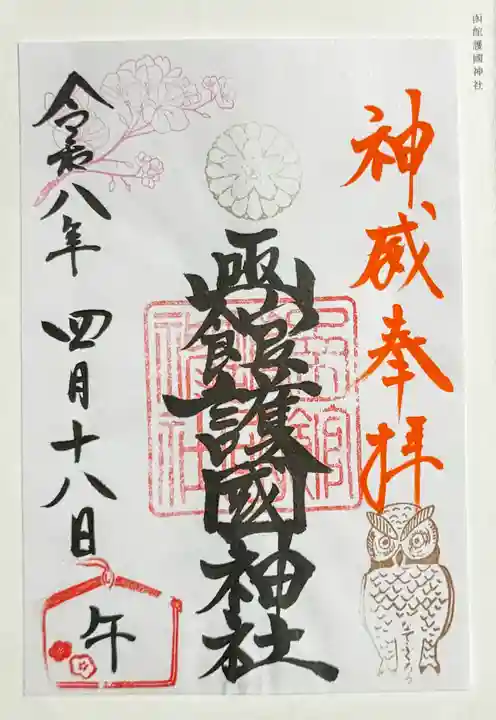 函館護國神社
神威奉拝
函館護國神社
令和八年 四月十八日
午